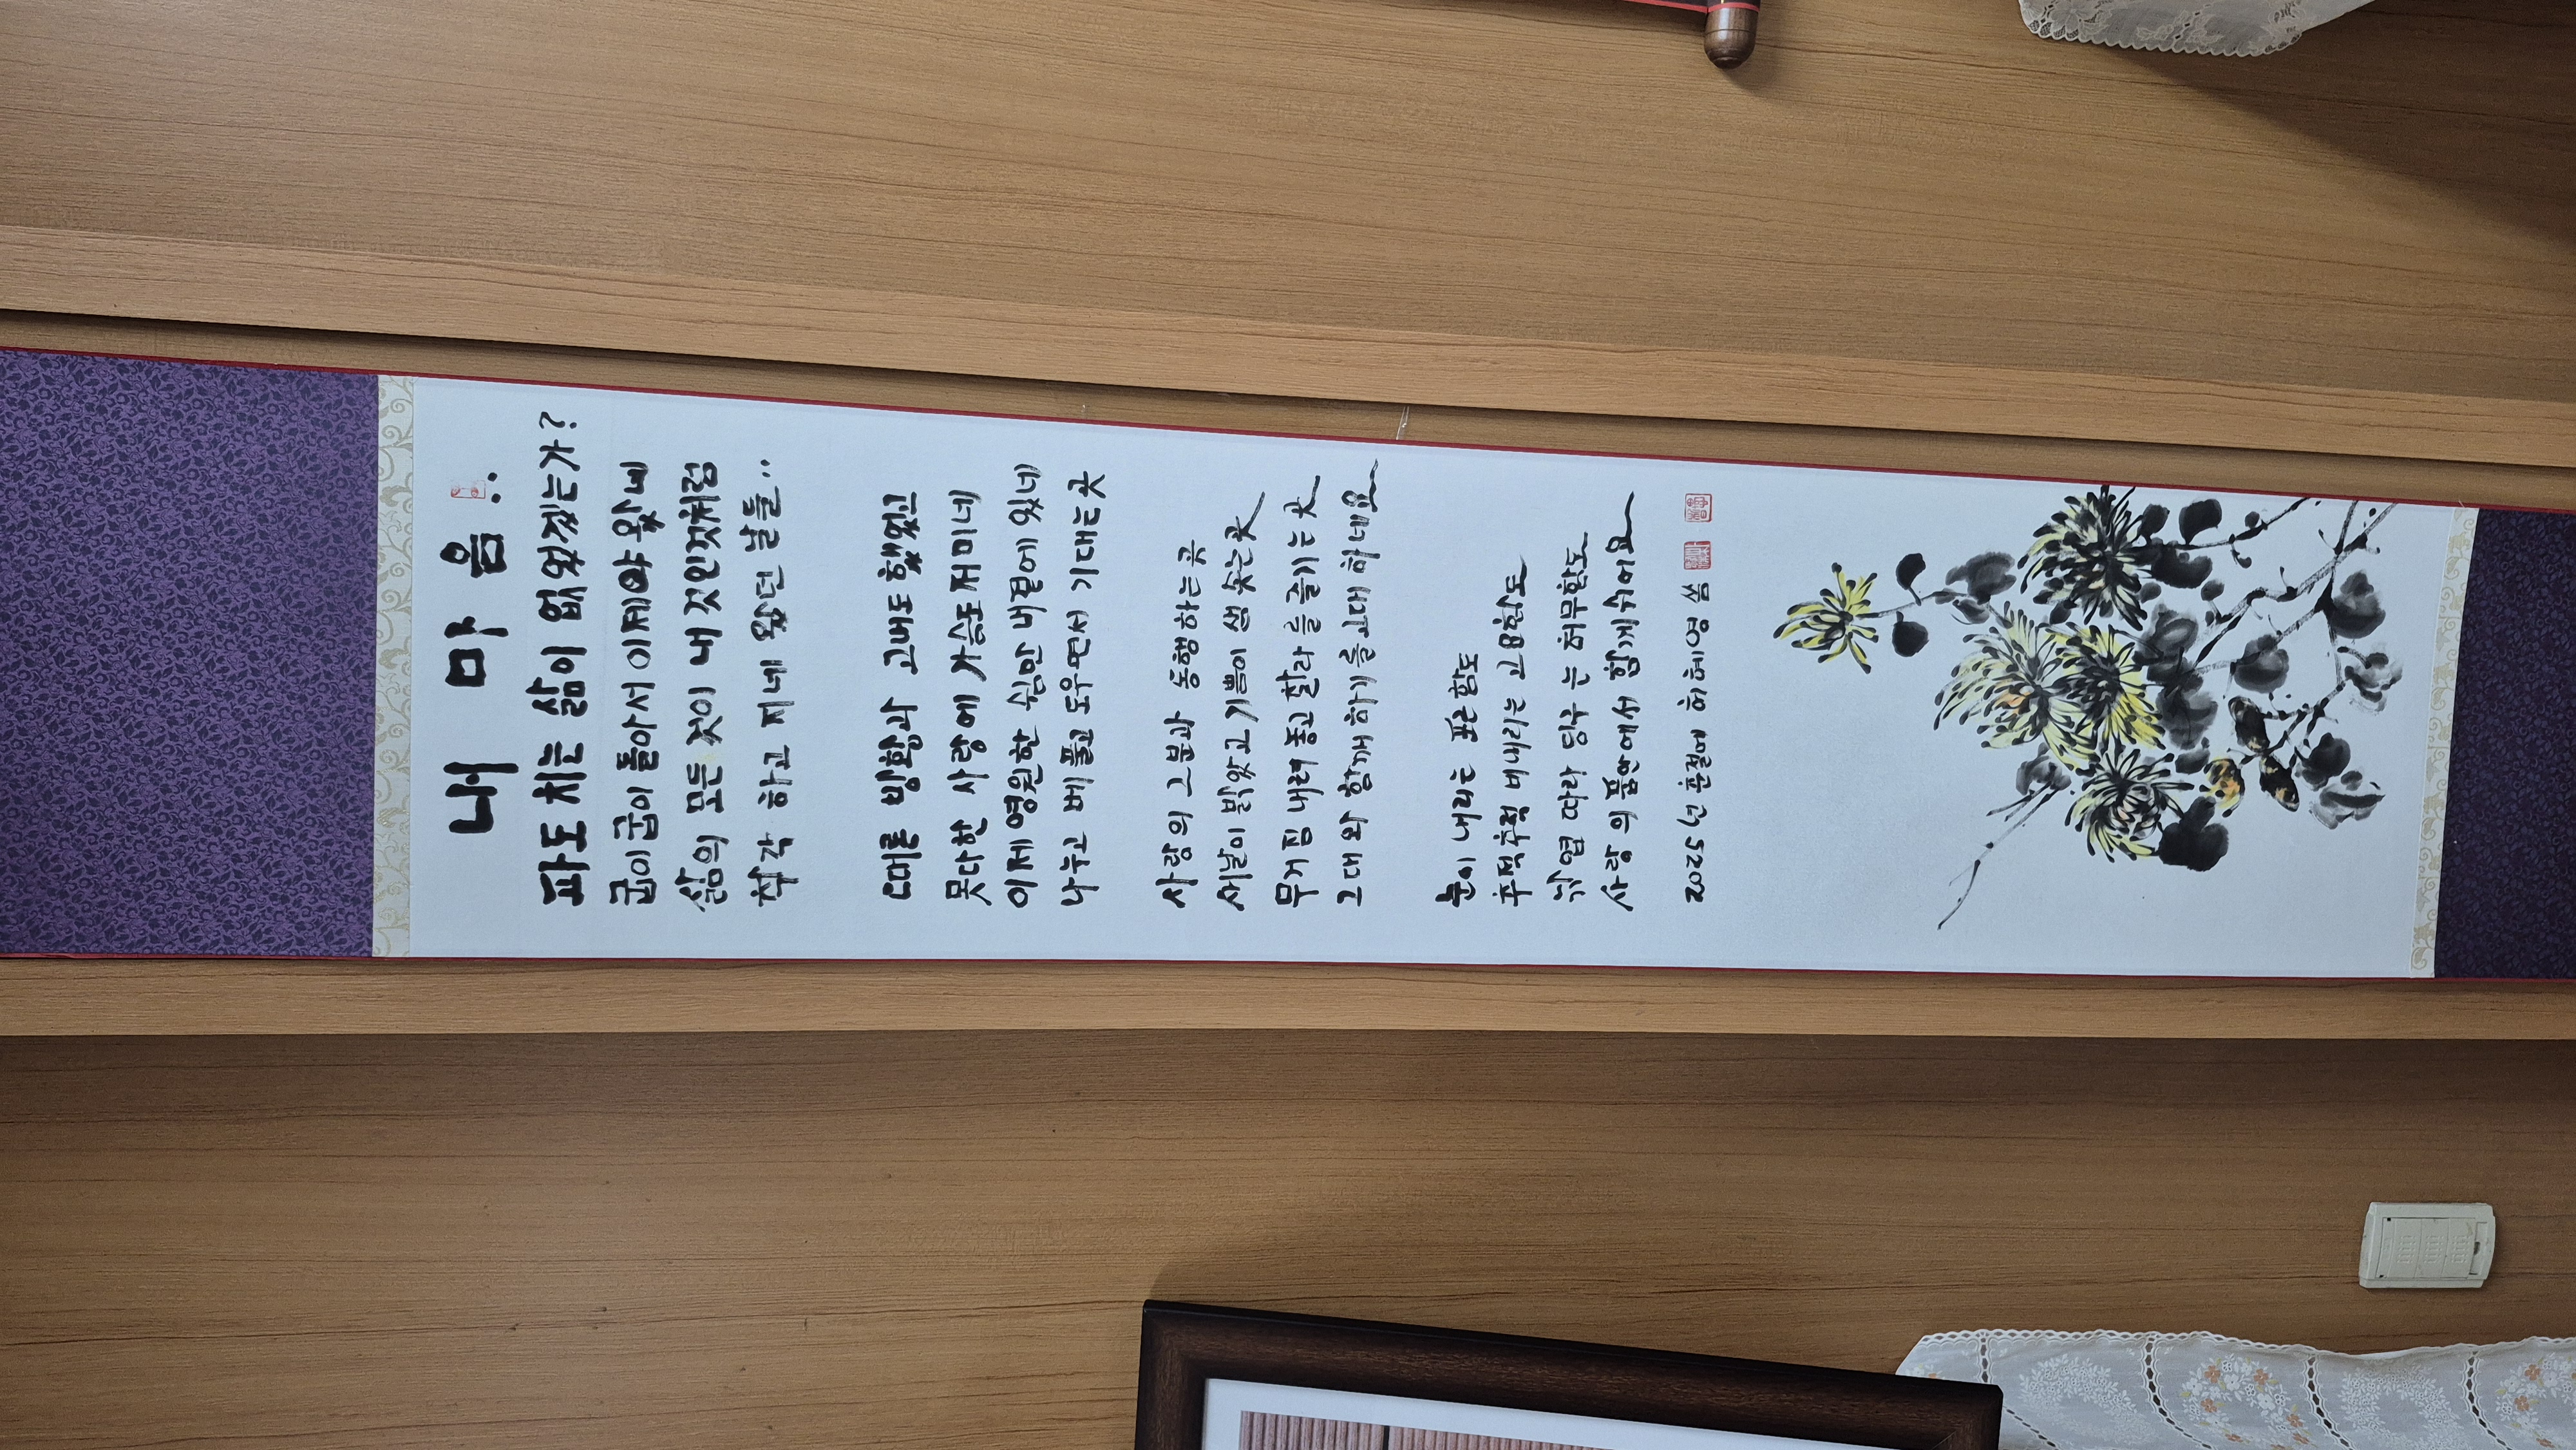 내 마 음 : .
파도 치는 삶이 없었겠는가?
굽이굽이 돌아서 이제야 왔네
삶의 모든 것이 내 것인것처럼
착각 하고 지네 왔던 날들..
때론 방황과 고뇌도 했었고
못다한 사랑에 가슴도 저미네
이제 영원한 쉼만 내 곁에 있네
나누고 베풀고 도우면서 기대는 곳
사랑의 그분과 동행하는 곳
새날이 밝았고 기쁨이 샘 솟는 곳
무거 짐 내려 놓고 찰라를 즐기는 곳
그대와 함께 하기를 고대 하네요
눈이 내리는 포근함도
추적추적 비내리는 고요함도
낙엽 따라 뒹구는 허무함도
사랑의 품안에서 함께 쉬어요
2025년 춘절에 허혜영 씀